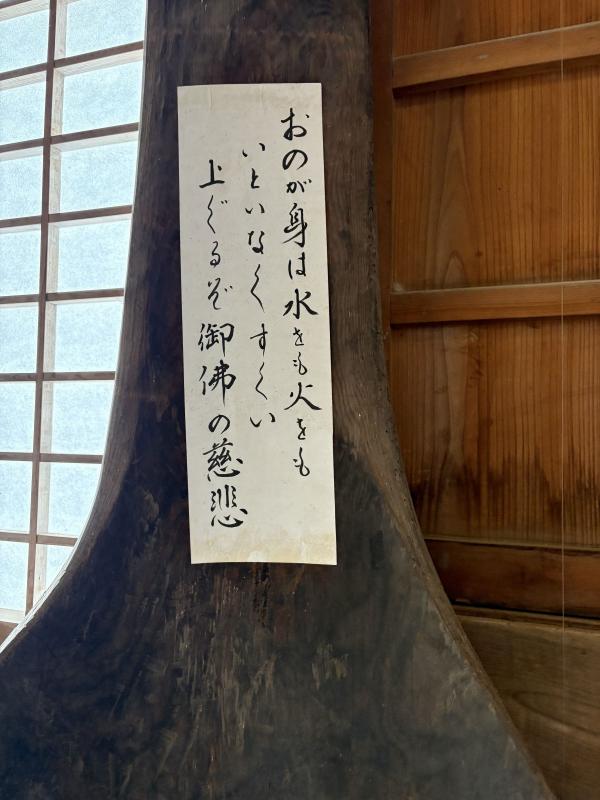 おのが身は水をも火をも
いといなくすくい
上ぐるぞ御佛の慈悲